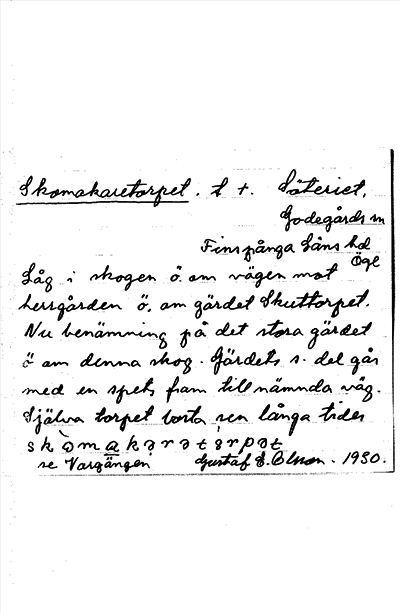 Skomakaretorpet. t t. Säteriet,
Godegårds sn
Finspånga läns hd
Ögl
Låg i skogen ö. om vägen mot
herrgården ö. om gärdet Skuttorpet.
Nu benämning på det stora gärdet
ö om denna skog. Gärdets s. del går
med en spets fram till nämnda väg.
Själva torpet borta sen långa tider
se Vargängen Gustaf E. Olsson. 1930.